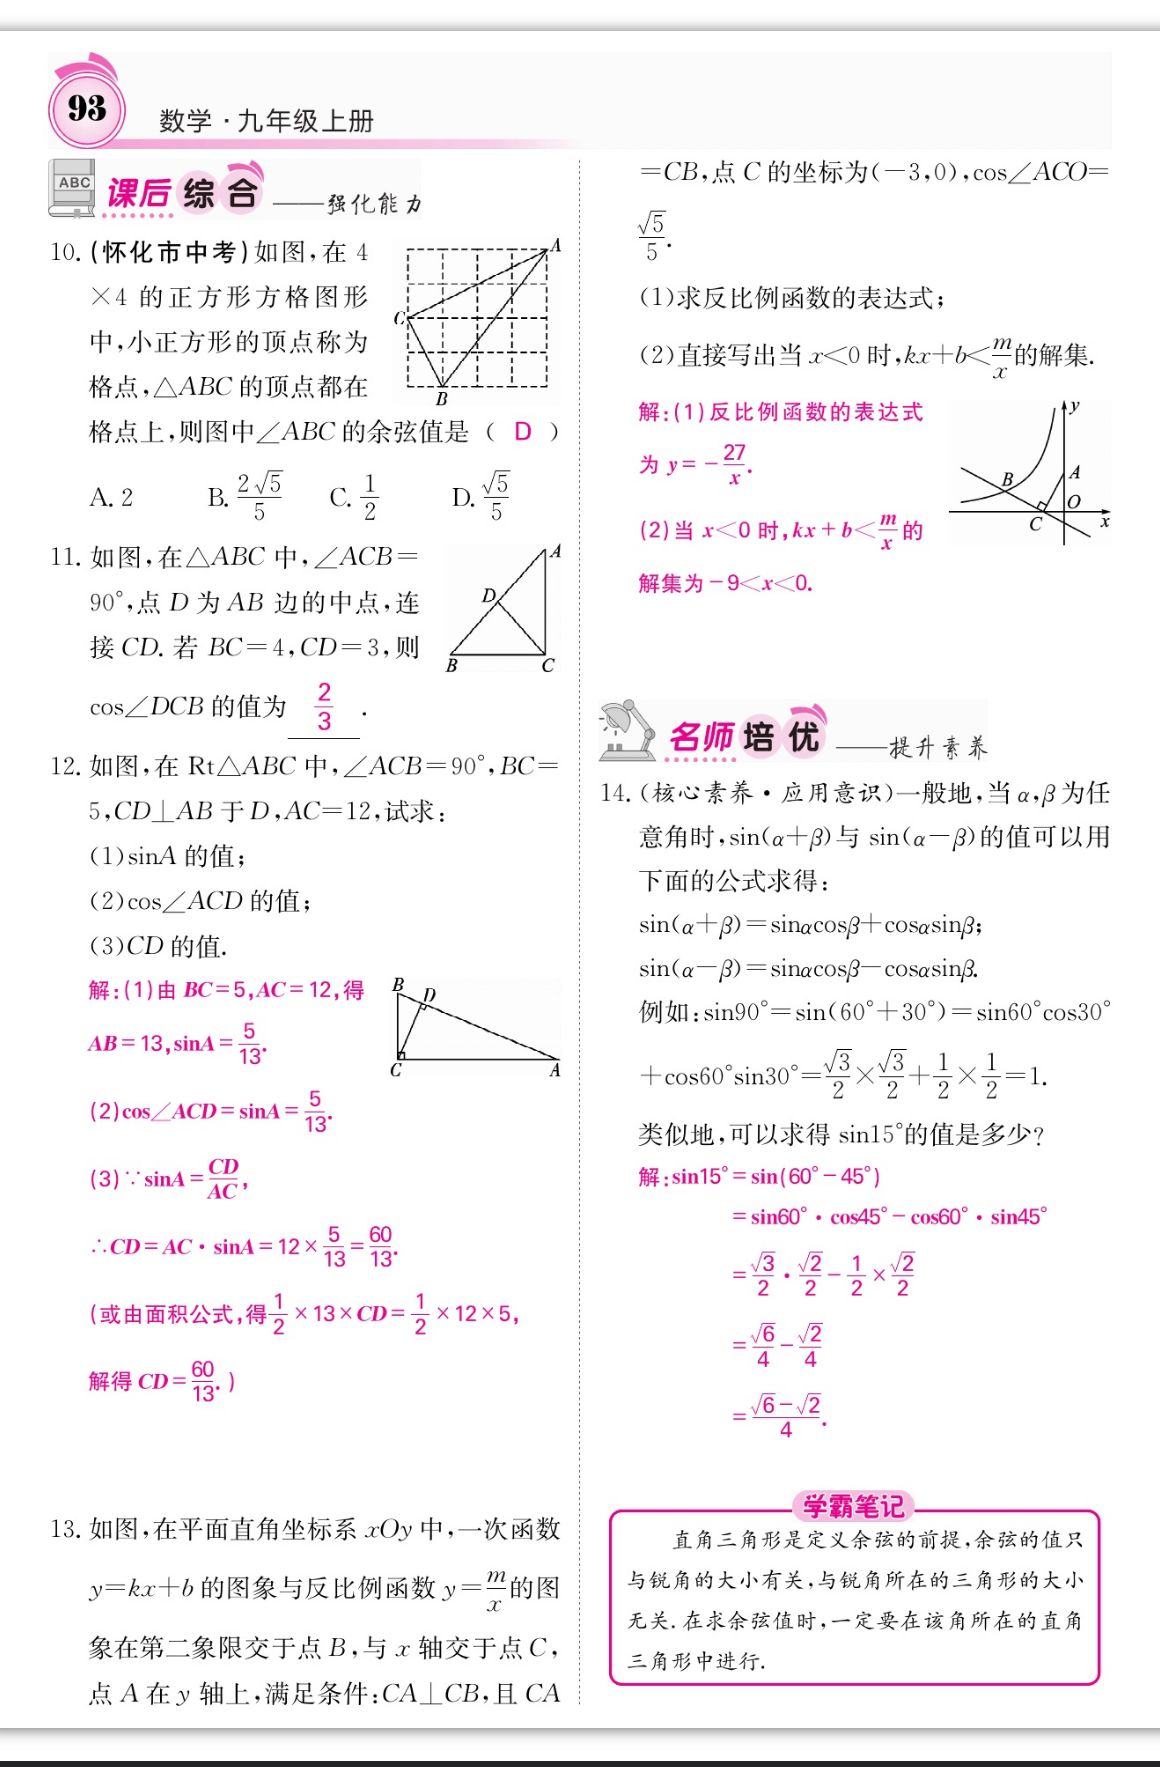 93
数学·九年级上册
ABC
课后综合——强化能力
10. (怀化市中考)如图,在 4
×4 的正方形方格图形
中,小正方形的顶点称为
格点,△ABC 的顶点都在
格点上,则图中∠ABC 的余弦值是 ( D )
A. 2 B. 2√5/5 C. 1/2 D. √5/5
A
C
B
11. 如图,在△ABC 中,∠ACB=
90°,点 D 为 AB 边的中点,连
接 CD. 若 BC=4,CD=3,则
cos∠DCB 的值为 2/3 .
A
D
B
C
12. 如图,在 Rt△ABC 中,∠ACB=90°,BC=
5,CD⊥AB 于 D,AC=12,试求:
(1)sinA 的值;
(2)cos∠ACD 的值;
(3)CD 的值.
解:(1)由 BC=5,AC=12,得
AB=13,sinA=5/13.
(2)cos∠ACD=sinA=5/13.
(3)∵sinA=CD/AC,
∴CD=AC·sinA=12×5/13=60/13.
(或由面积公式,得1/2×13×CD=1/2×12×5,
解得 CD=60/13.)
B
D
C
A
13. 如图,在平面直角坐标系 xOy 中,一次函数
y=kx+b 的图象与反比例函数 y=m/x的图
象在第二象限交于点 B,与 x 轴交于点 C,
点 A 在 y 轴上,满足条件:CA⊥CB,且 CA
=CB,点 C 的坐标为(-3,0),cos∠ACO=
√5/5.
(1)求反比例函数的表达式;
(2)直接写出当 x<0 时,kx+b<m/x的解集.
解:(1)反比例函数的表达式
为 y=-27/x.
(2)当 x<0 时,kx+b<m/x的
解集为-9<x<0.
y
B
A
O
C
x
名师培优——提升素养
14. (核心素养·应用意识)一般地,当 α,β 为任
意角时,sin(α+β)与 sin(α-β)的值可以用
下面的公式求得:
sin(α+β)=sinαcosβ+cosαsinβ;
sin(α-β)=sinαcosβ-cosαsinβ.
例如:sin90°=sin(60°+30°)=sin60°cos30°
+cos60°sin30°=√3/2×√3/2+1/2×1/2=1.
类似地,可以求得 sin15°的值是多少?
解:sin15°=sin(60°-45°)
=sin60°·cos45°-cos60°·sin45°
=√3/2·√2/2-1/2×√2/2
=√6/4-√2/4
=(√6-√2)/4.
学霸笔记
直角三角形是定义余弦的前提,余弦的值只
与锐角的大小有关,与锐角所在的三角形的大小
无关.在求余弦值时,一定要在该角所在的直角
三角形中进行.